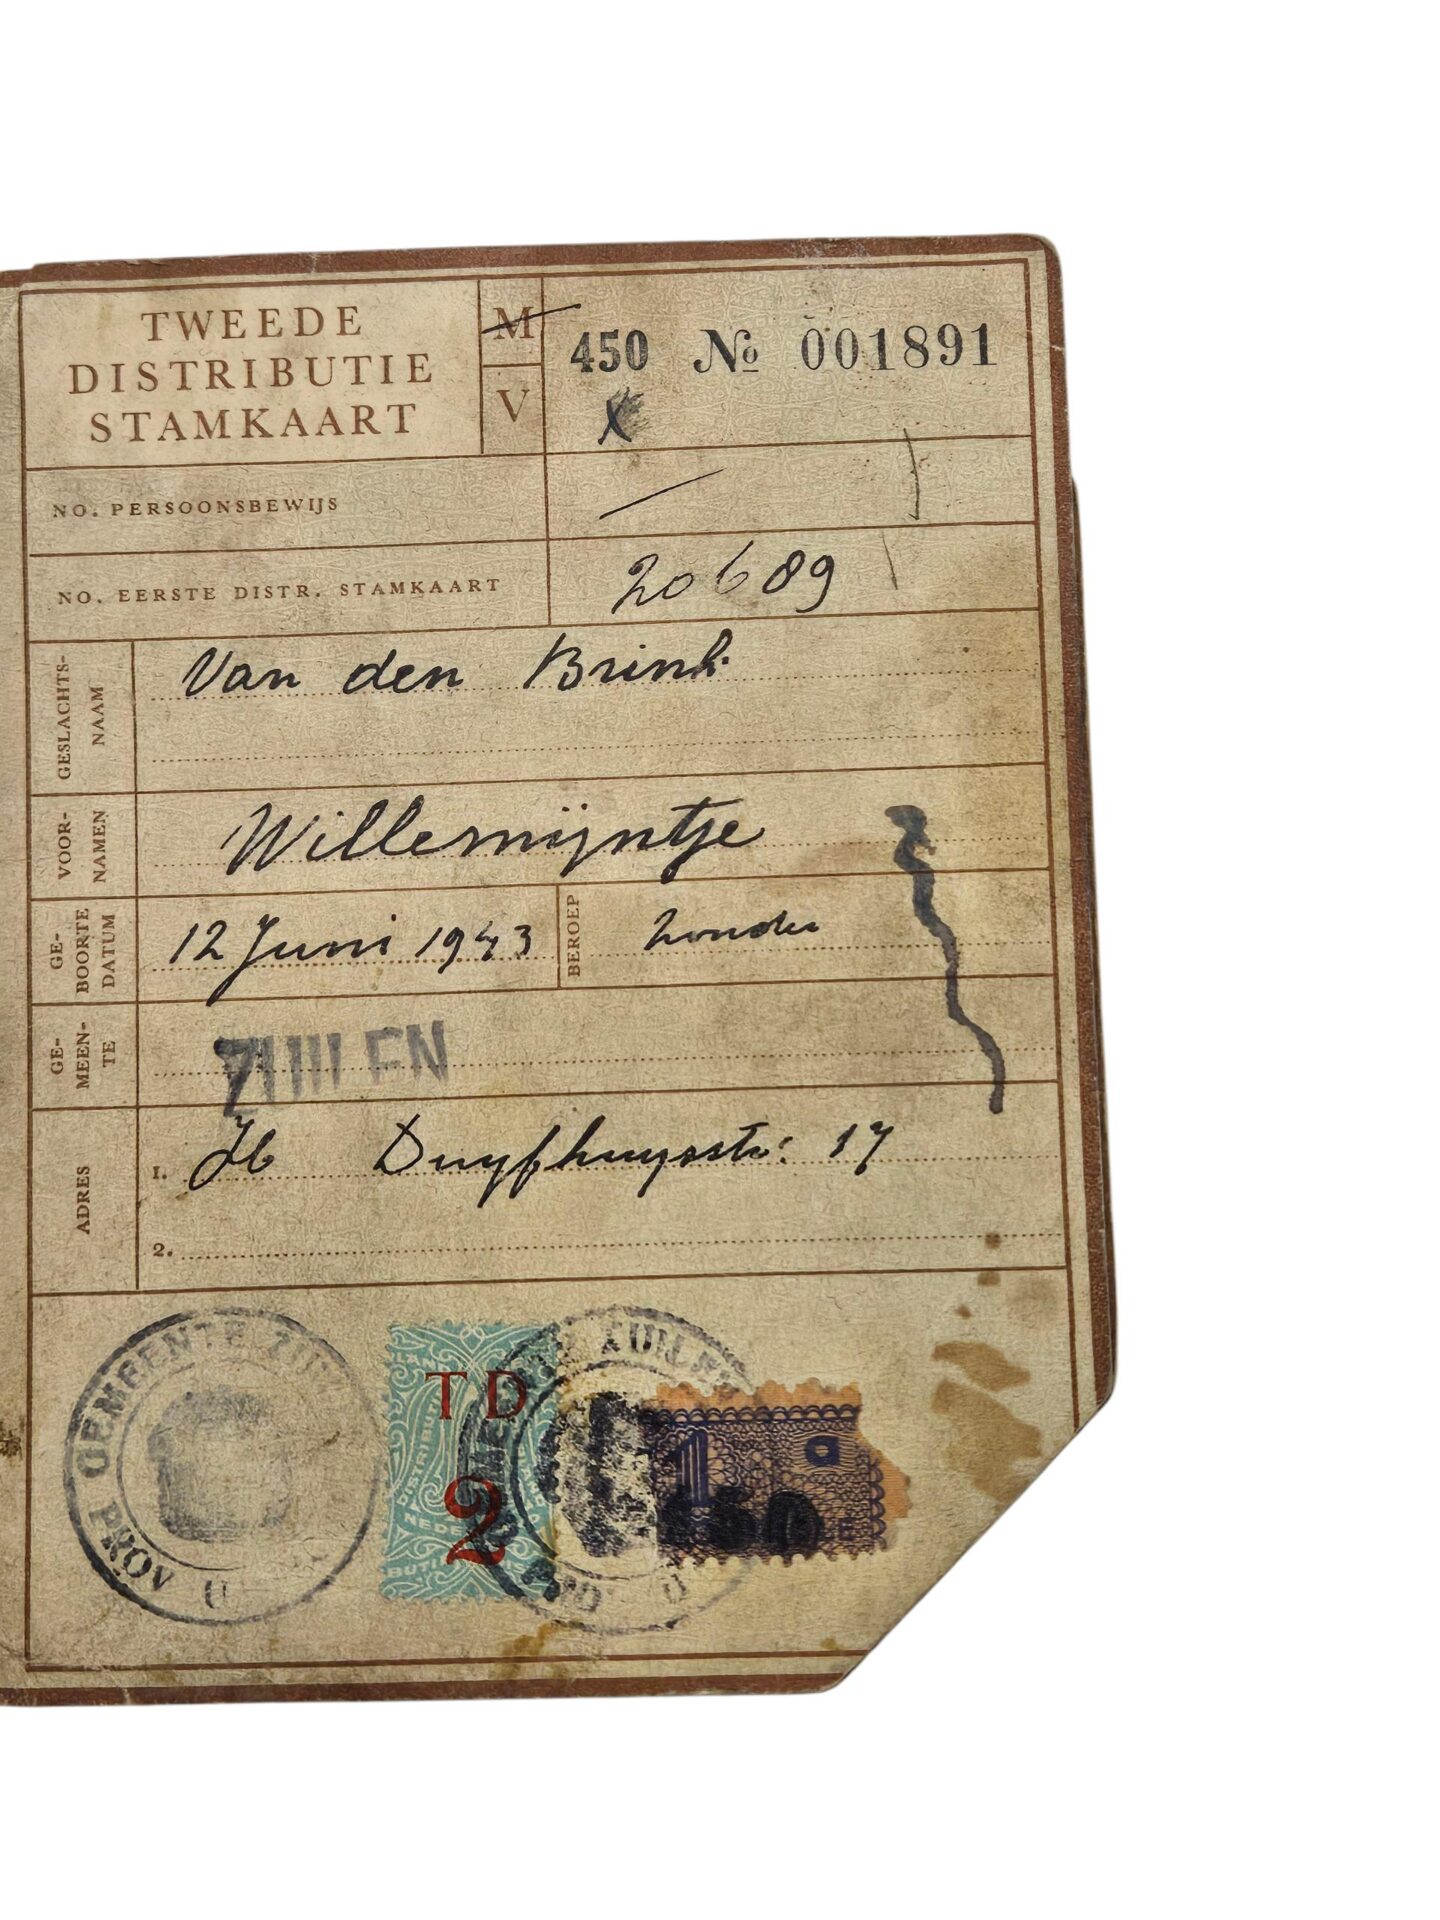 TWEEDE
DISTRIBUTIE
STAMKAART
M
V
450 No 001891
X
NO. PERSOONSBEWIJS
NO. EERSTE DISTR. STAMKAART 20689
GESLACHTS-
NAAM
Van den Brink
VOOR-
NAMEN
Willemijntje
GE-
BOORTE
DATUM
12 Juni 1943
BEROEP
zonder
GE-
MEEN-
TE
ZUILEN
ADRES
1. Jb Duyfhuysstr: 17
2.
GEMEENTE ZUILEN
PROV U
TD
2
NEDE
1
450